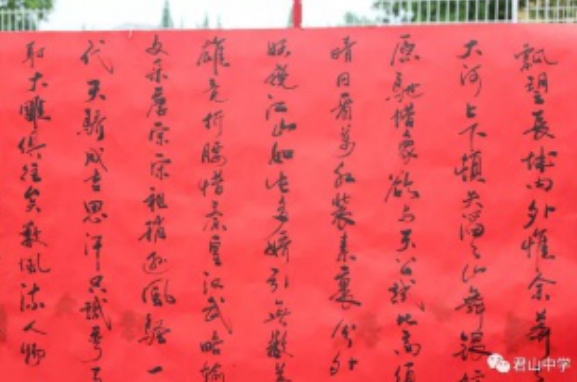 飘望长城内外惟余莽
大河上下顿失滔々山舞银
原驰蜡象欲与天公试比高须
晴日看万红装素裹分外
妖娆江山如此多娇引无数英
雄竞折腰惜秦皇汉武略输
文采唐宗宋祖稍逊风骚一
代天骄成吉思汗只识弯弓
射大雕俱往矣数风流人物
君山中学